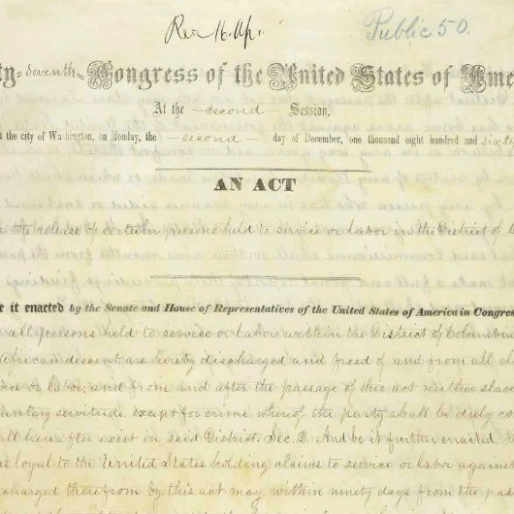 Rec 16. Ap.
Public 50.
ty-seventh Congress of the United States of Ame
At the second Session,
t the city of Washington, on Monday, the second day of December, one thousand eight hundred and sixty
AN ACT
the release of certain persons held to service or labor in the District of C
e it enacted by the Senate and House of Representatives of the United States of America in Congres
all persons held to service or labor within the District of Columbia
African descent are hereby discharged and freed of and from all cl
vice or labor; and from and after the passage of this act neither slave
oluntary servitude, except for crime, whereof the party shall be duly co
all hereafter exist in said District. Sec. 2. And be it further enacted, T
s loyal to the United States holding claims to service or labor against
charged therefrom by this act may, within ninety days from the pas